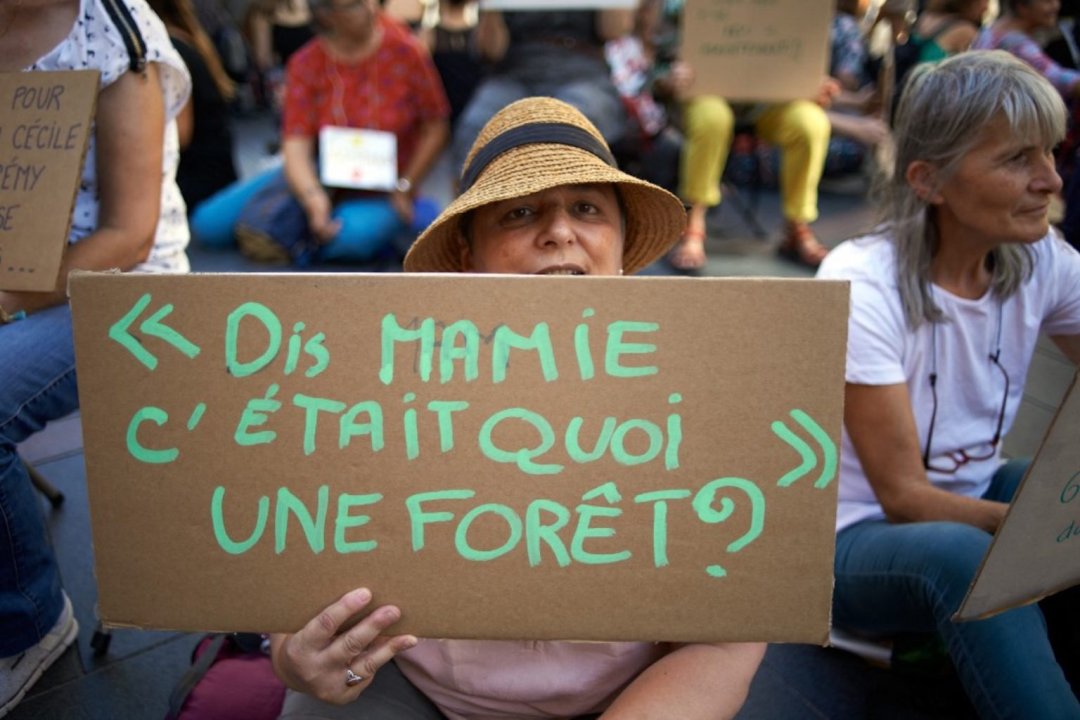 POUR
CÉCILE
RÉMY
« Dis MAMIE
C'ÉTAIT QUOI »
UNE FORÊT ?